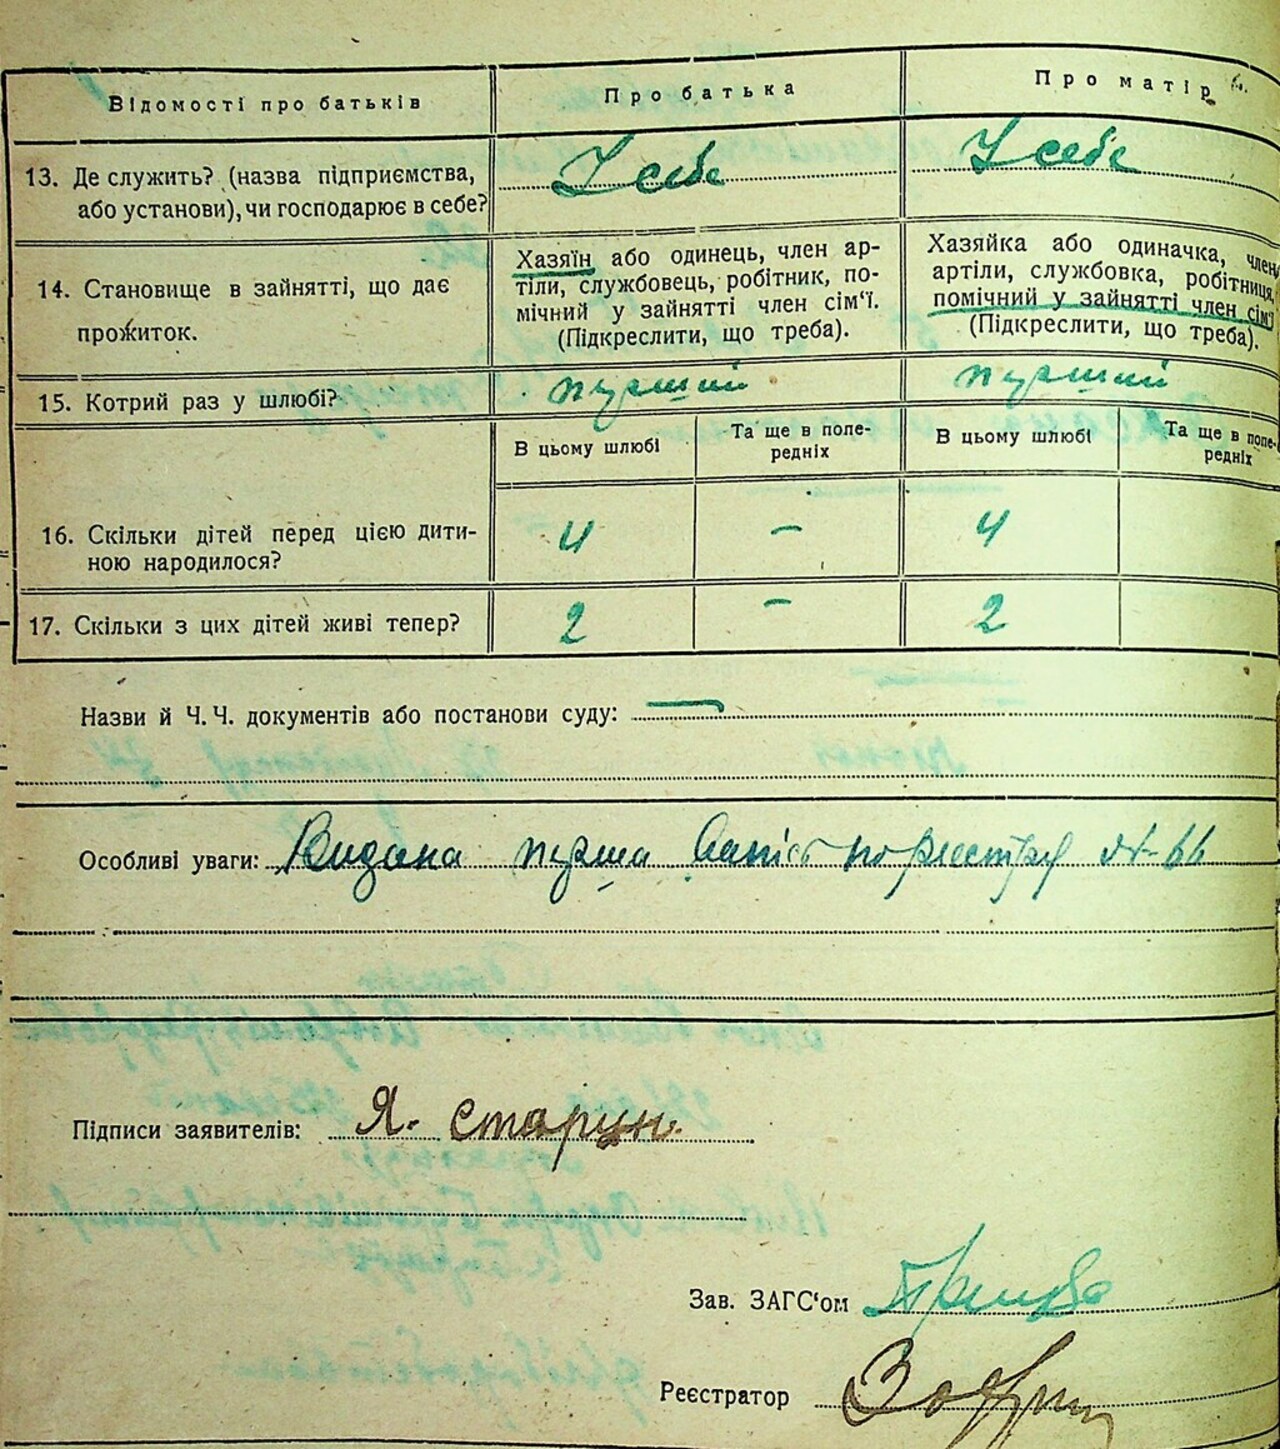 Відомості про батьків
Про батька
Про матір
13. Де служить? (назва підприємства,
або установи), чи господарює в себе?
У себе
У себе
14. Становище в зайнятті, що дає
прожиток.
Хазяїн або одинець, член ар-
тіли, службовець, робітник, по-
мічний у зайнятті член сім'ї.
(Підкреслити, що треба).
Хазяйка або одиначка, член
артіли, службовка, робітниця,
помічний у зайнятті член сім'ї
(Підкреслити, що треба).
15. Котрий раз у шлюбі?
перший
перший
В цьому шлюбі
Та ще в попе-
редніх
В цьому шлюбі
Та ще в попе-
редніх
16. Скільки дітей перед цією дити-
ною народилося?
4
–
4
17. Скільки з цих дітей живі тепер?
2
–
2
Назви й Ч.Ч. документів або постанови суду: —
Особливі уваги: Видана перша по реєстру № 66
Підписи заявителів: Я. Старун
Зав. ЗАГС'ом
Реєстратор